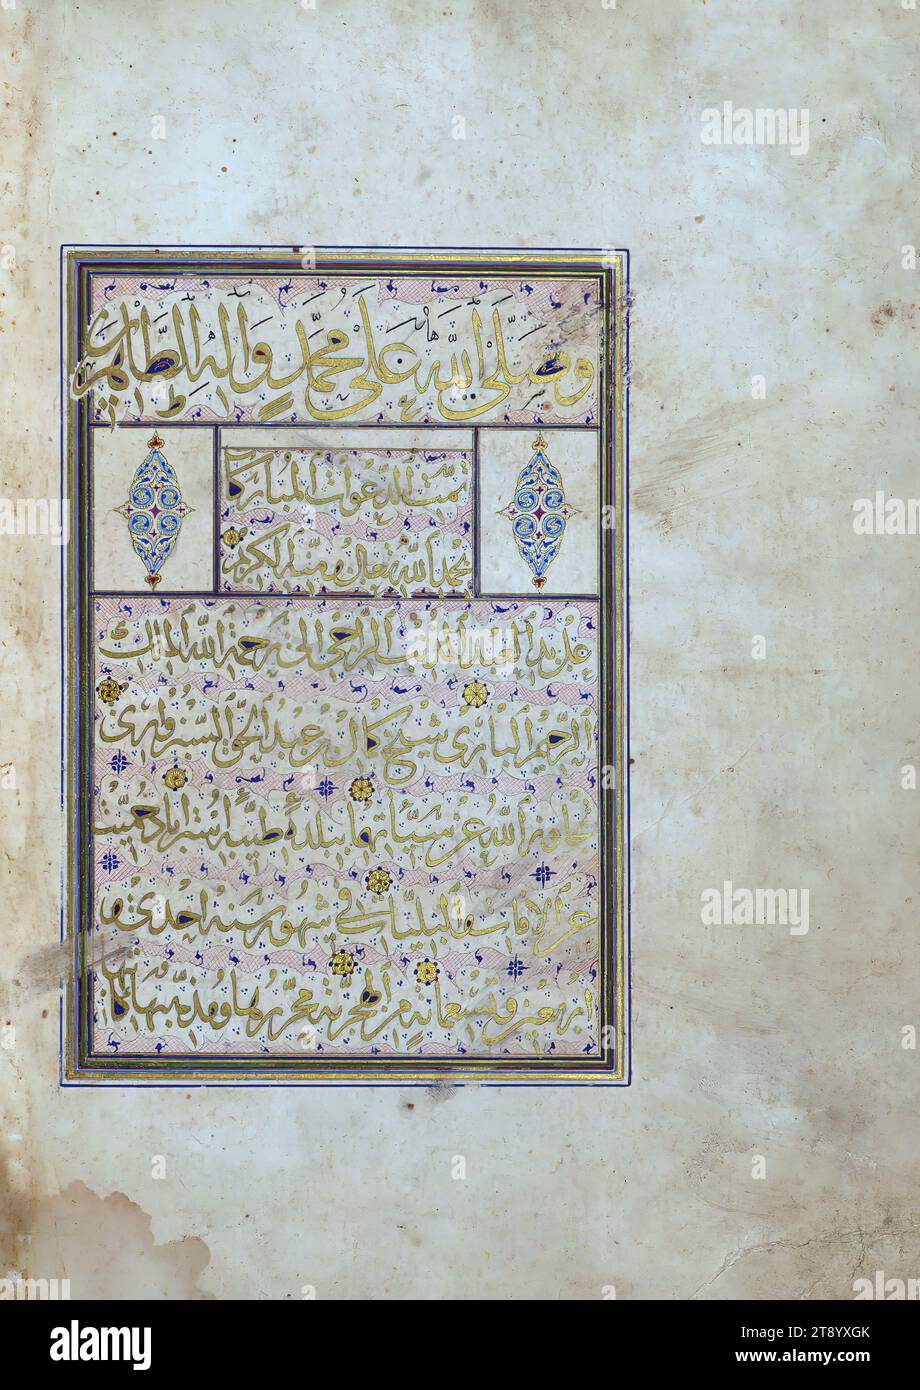 وَصَلَّى اللّٰهُ عَلَى مُحَمَّدٍ وَآلِهِ الطَّاهِرِينَ
تمت الدعوات المباركة
بحمد الله تعالى ومنه الكريم
عن يد العبد المذنب الراجي الى رحمة الله الملك
الرحيم الباري شيخ كمال بن عبد الحق السبزواري
تجاوز الله عن سيئاتهما ببلدة طيبة استراباد حميت
عن الافات والبليات في شهور سنة احدى و
اربعين وتسعمائة من الهجرية محررها ومذهبها
alamy
alamy
Image ID: 2T8YXGK
www.alamy.com